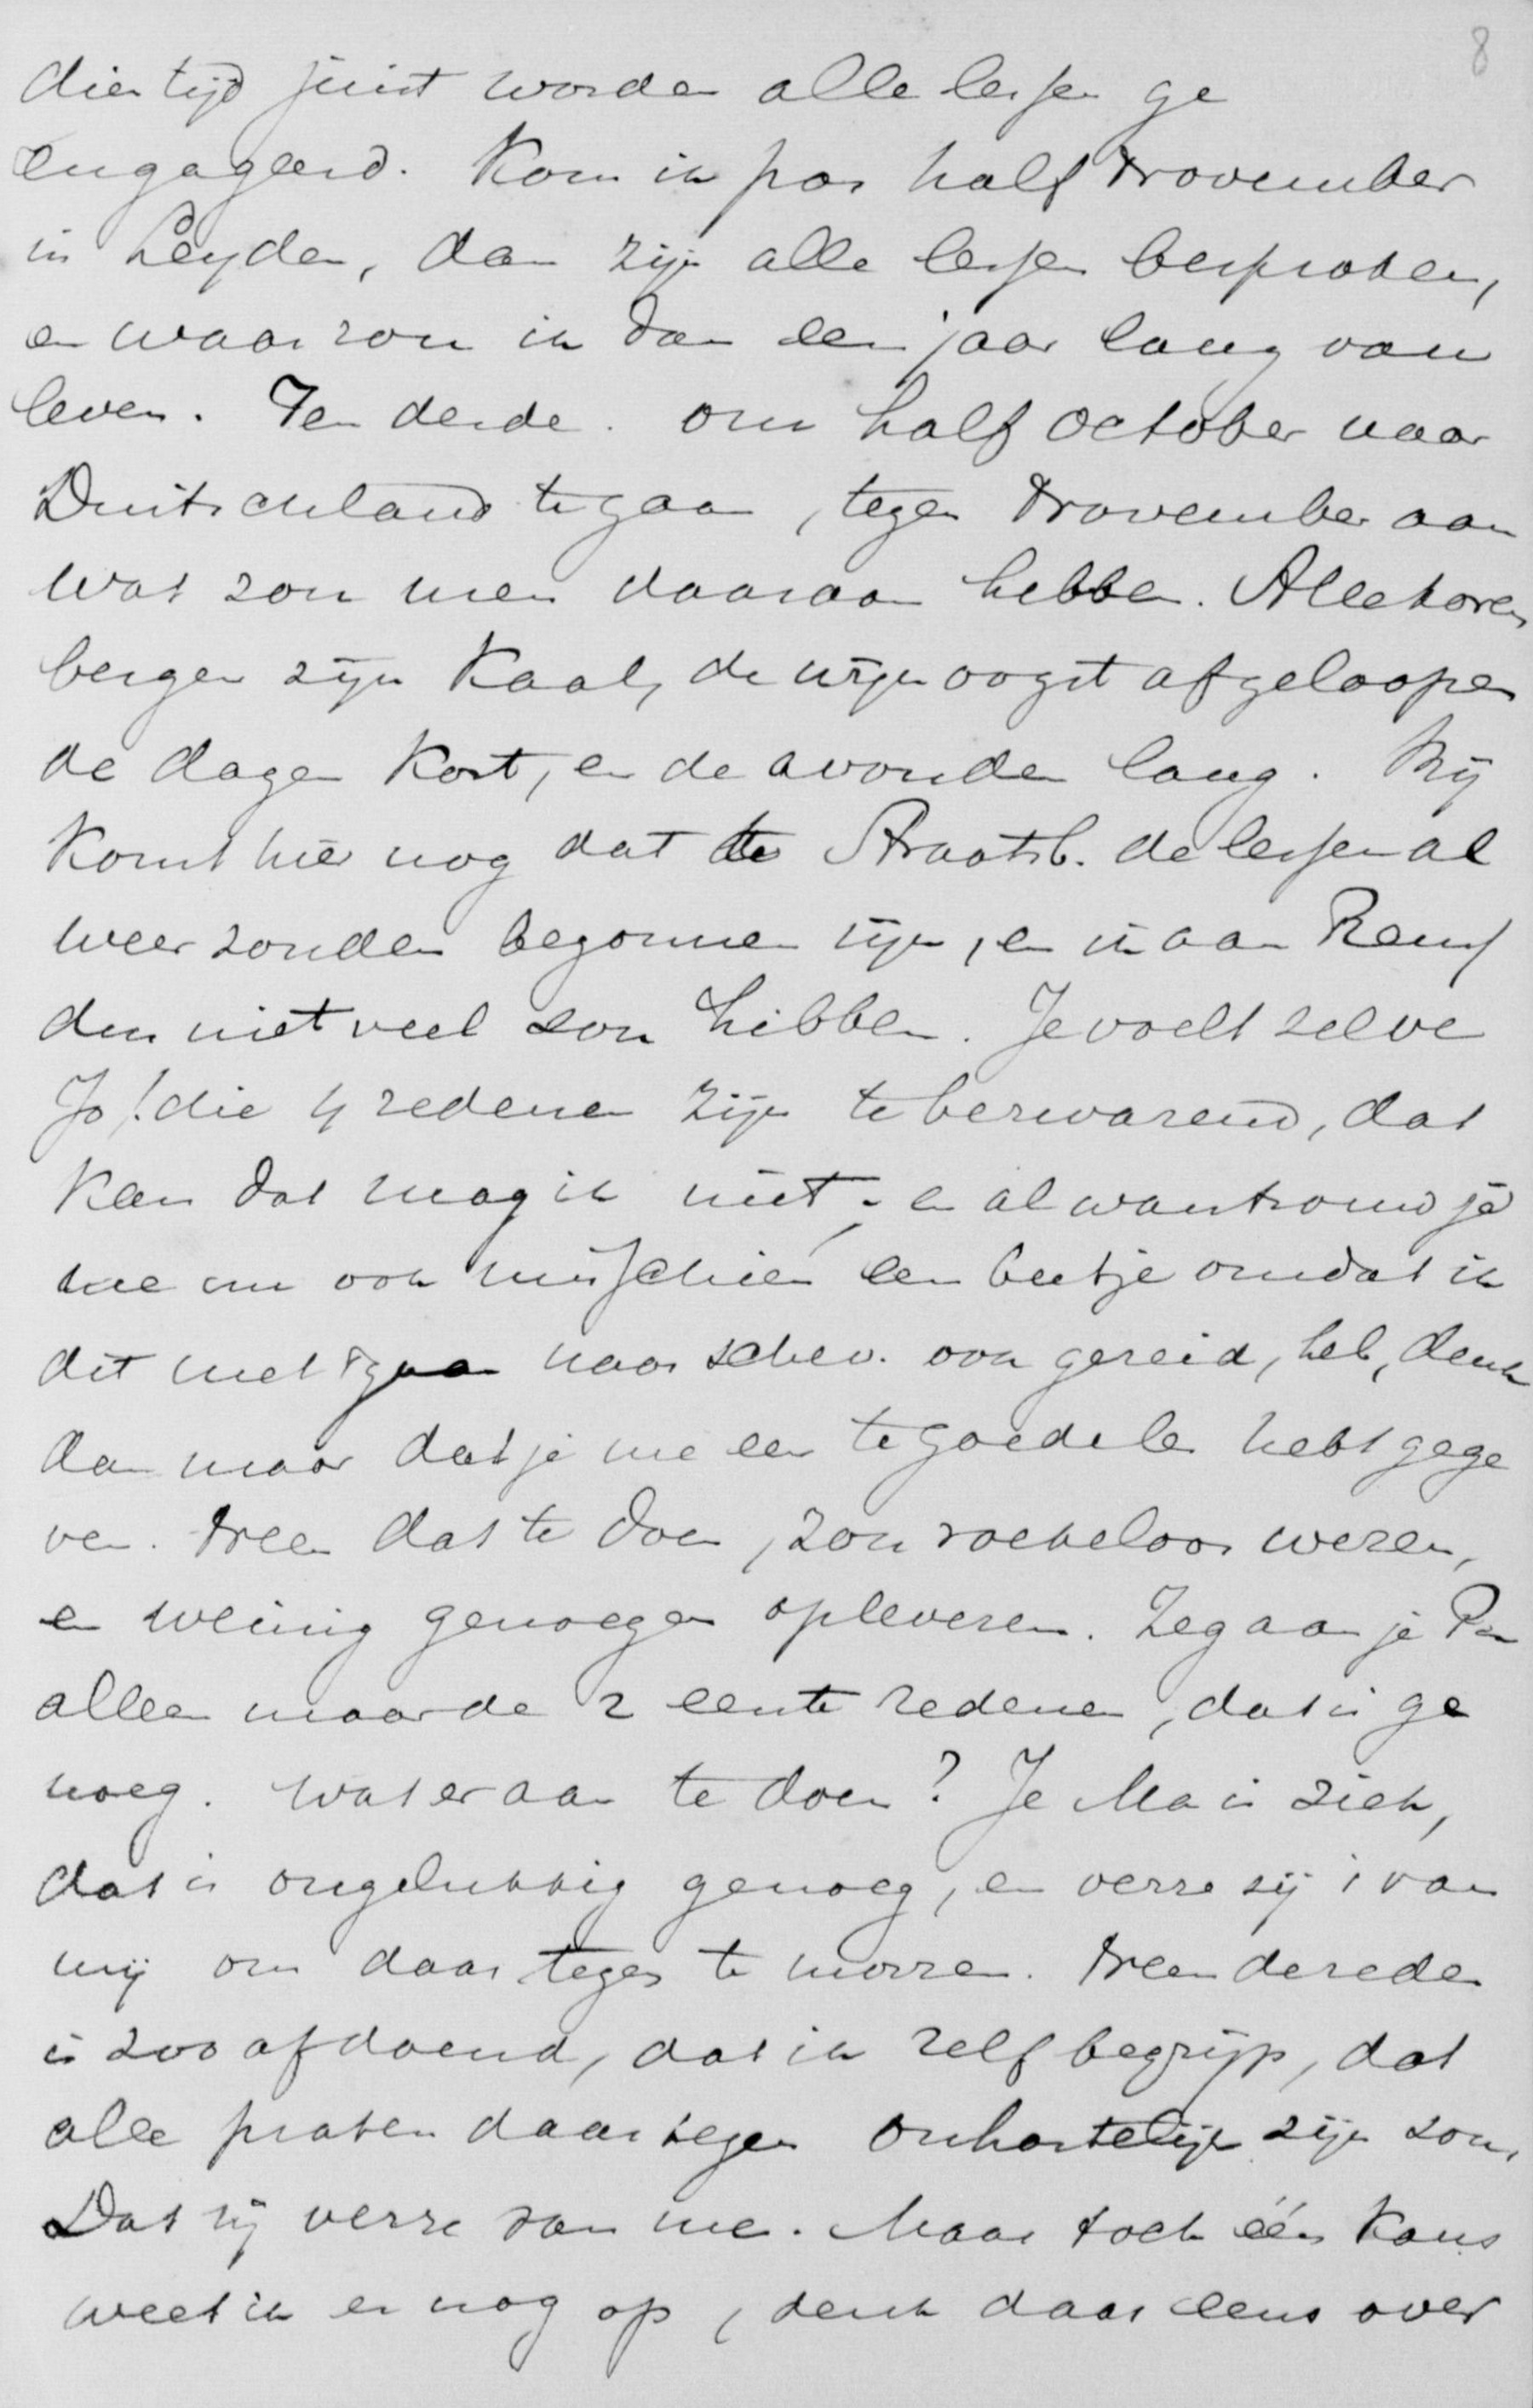 8
dien tijd juist worden alle lessen ge
engageerd. Kom ik pas half November
in Leyden, dan zijn alle lessen besproken,
en waar zou ik dan een jaar lang van
leven. Ten derde. om half October naar
Duitschland te gaan, tegen November aan
wat zou men daaraan hebben. Alle koren
bergen zijn kaal, de wijnoogst afgeloopen
de dagen kort, en de avonden lang. Bij
komt hier nog dat te Straatsb. de lessen al
weer zouden begonnen zijn, en ik aan
den niet veel zou hebben. Je voelt zelve
Jo! die 4 redenen zijn te bezwarend, dat
kan dat mag ik niet; en al wantrouw je
me nu ook misschien een beetje omdat ik
dit met gaan naar Schev. ook gezeid, heb, denk
dan maar dat je me een te goede les hebt gege
ven. Neen dat te doen, zou roekeloos wezen,
en weinig genoegen opleveren. Zeg aan je Pa
alleen maar de 2 eerste redenen, dat is ge
noeg. Wat er aan te doen? Je Ma is ziek,
dat is ongelukkig genoeg, en verre zij 't van
mij om daar tegen te morren. Neen de reden
is zoo afdoend, dat ik zelf begrijp, dat
alle praten daartegen onhartelijk zijn zou.
Dat zij verre van me. Maar toch één kans
weet ik er nog op, denk daar eens over